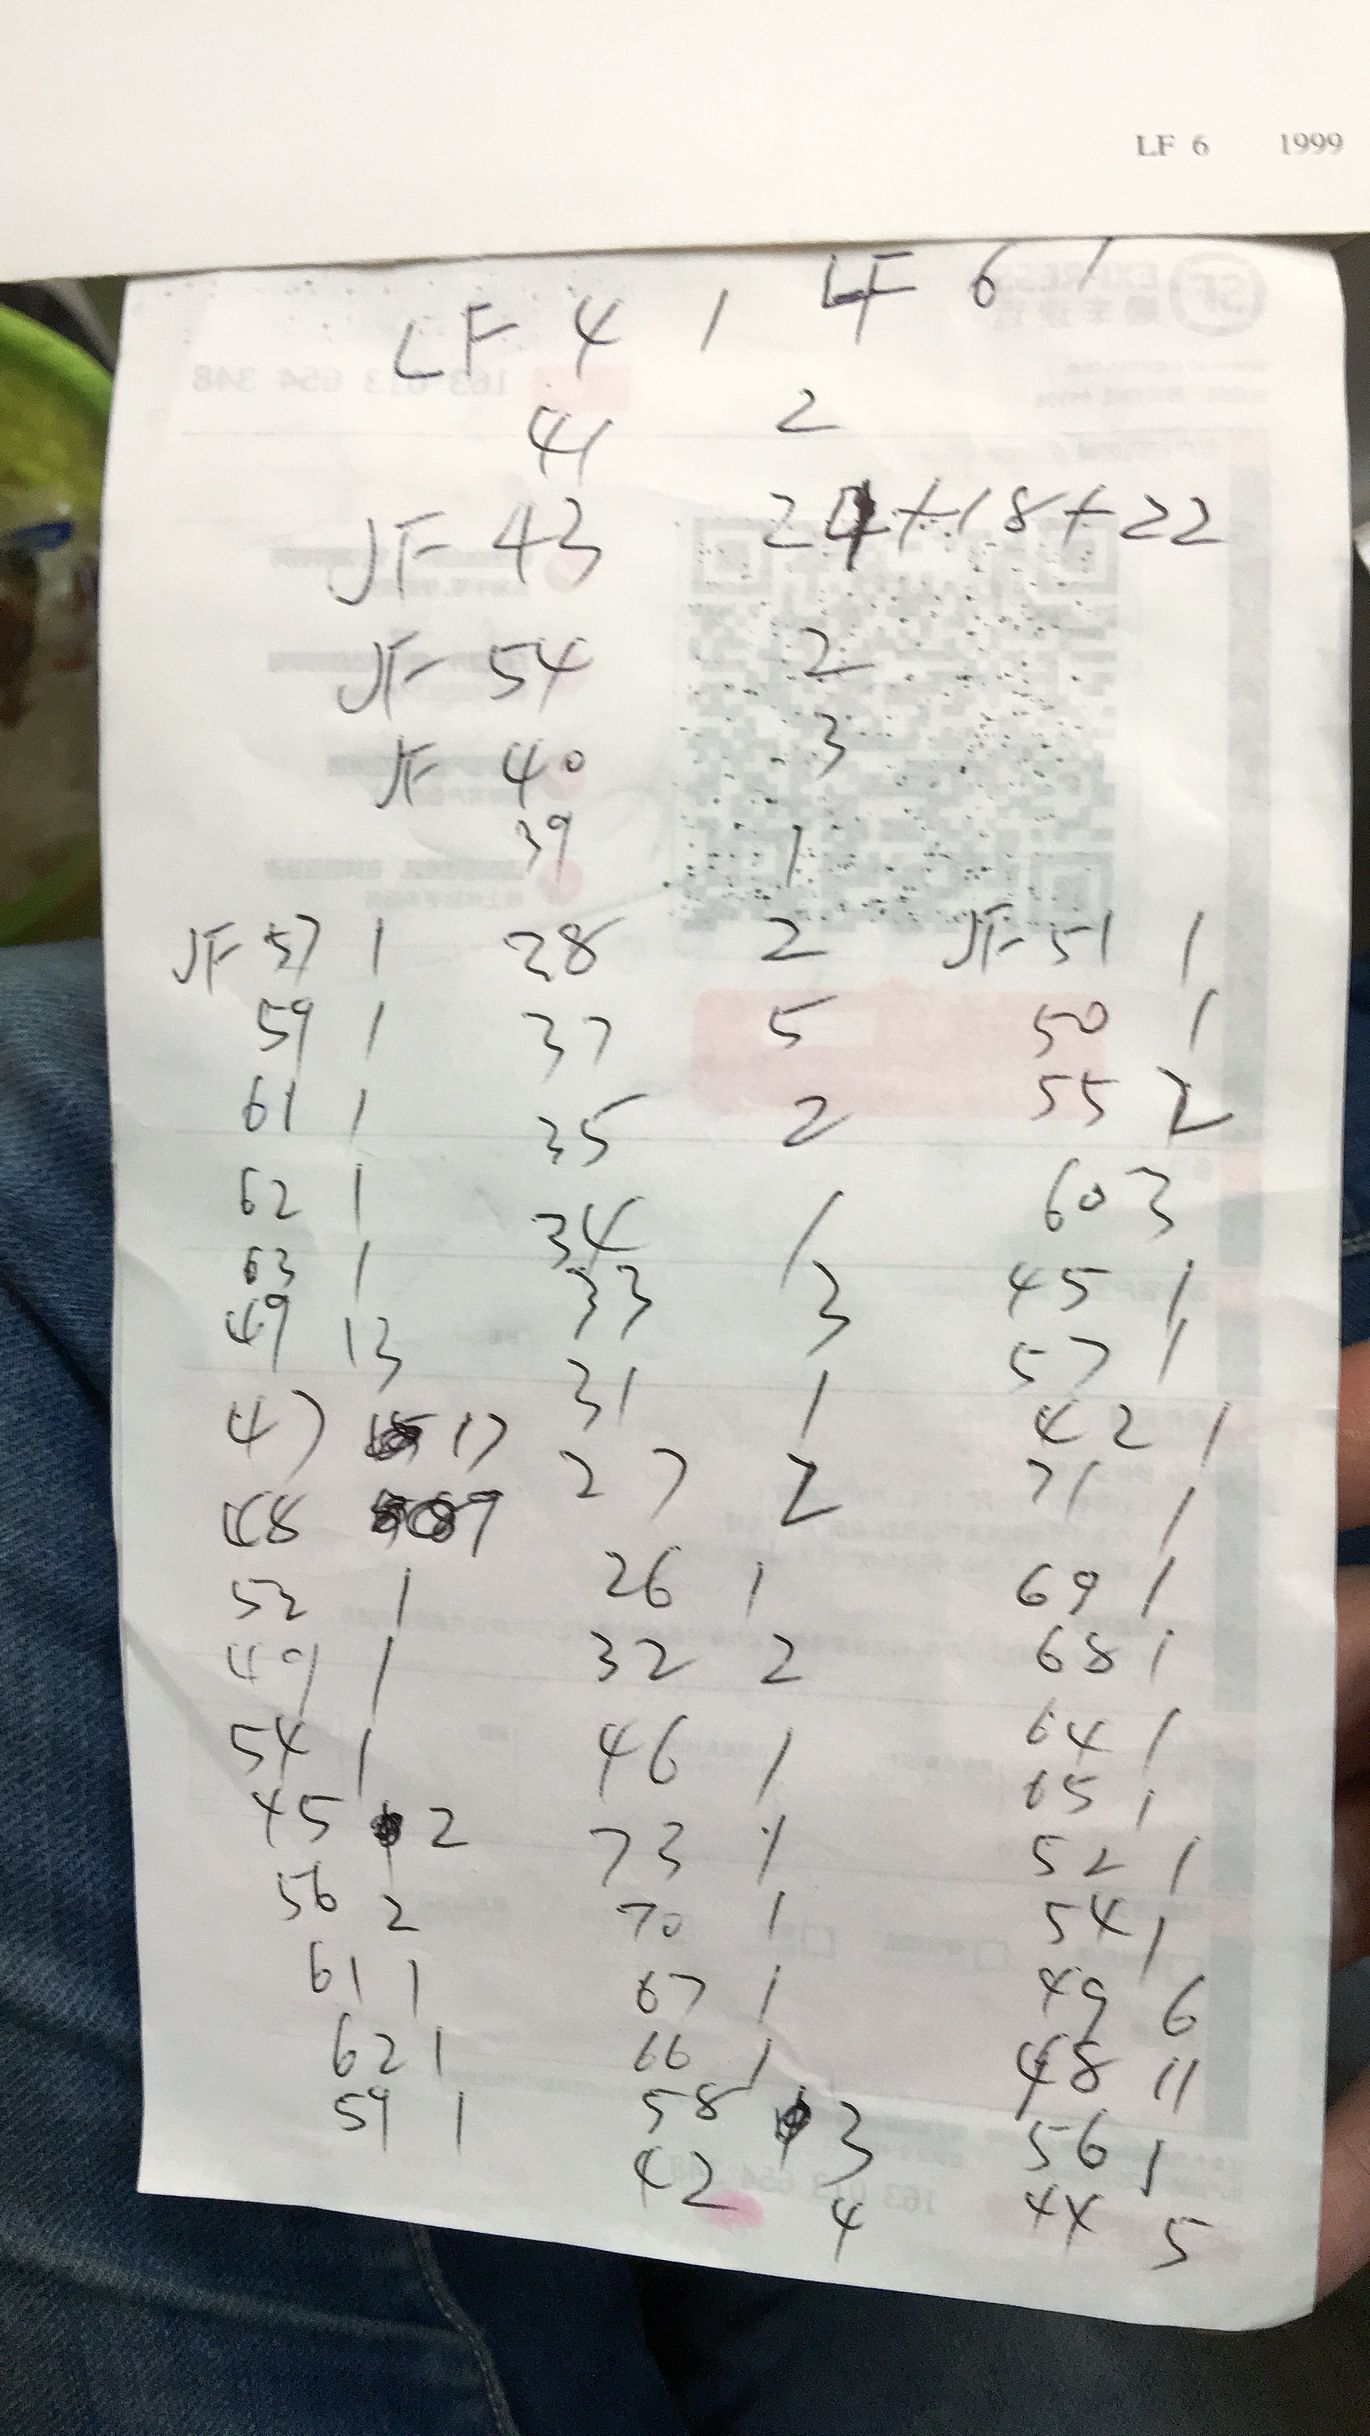 LF 6 1999
LF 4 1 LF 6 1
41 2
JF 43 24+18+22
JF 54 2
JF 40 3
39 1
JF 57 1 38 2 JF 51 1
59 1 37 5 50 1
61 1 35 2 55 2
62 1 34 1 60 3
63 1 33 3 45 1
49 13 31 1 57 1
47 17 27 2 42 1
48 9 26 1 71 1
52 1 32 2 69 1
49 1 46 1 68 1
54 1 73 1 64 1
45 2 70 1 65 1
56 2 67 1 52 1
61 1 66 1 54 1
62 1 58 3 49 6
59 1 42 4 48 11
56 1
44 5